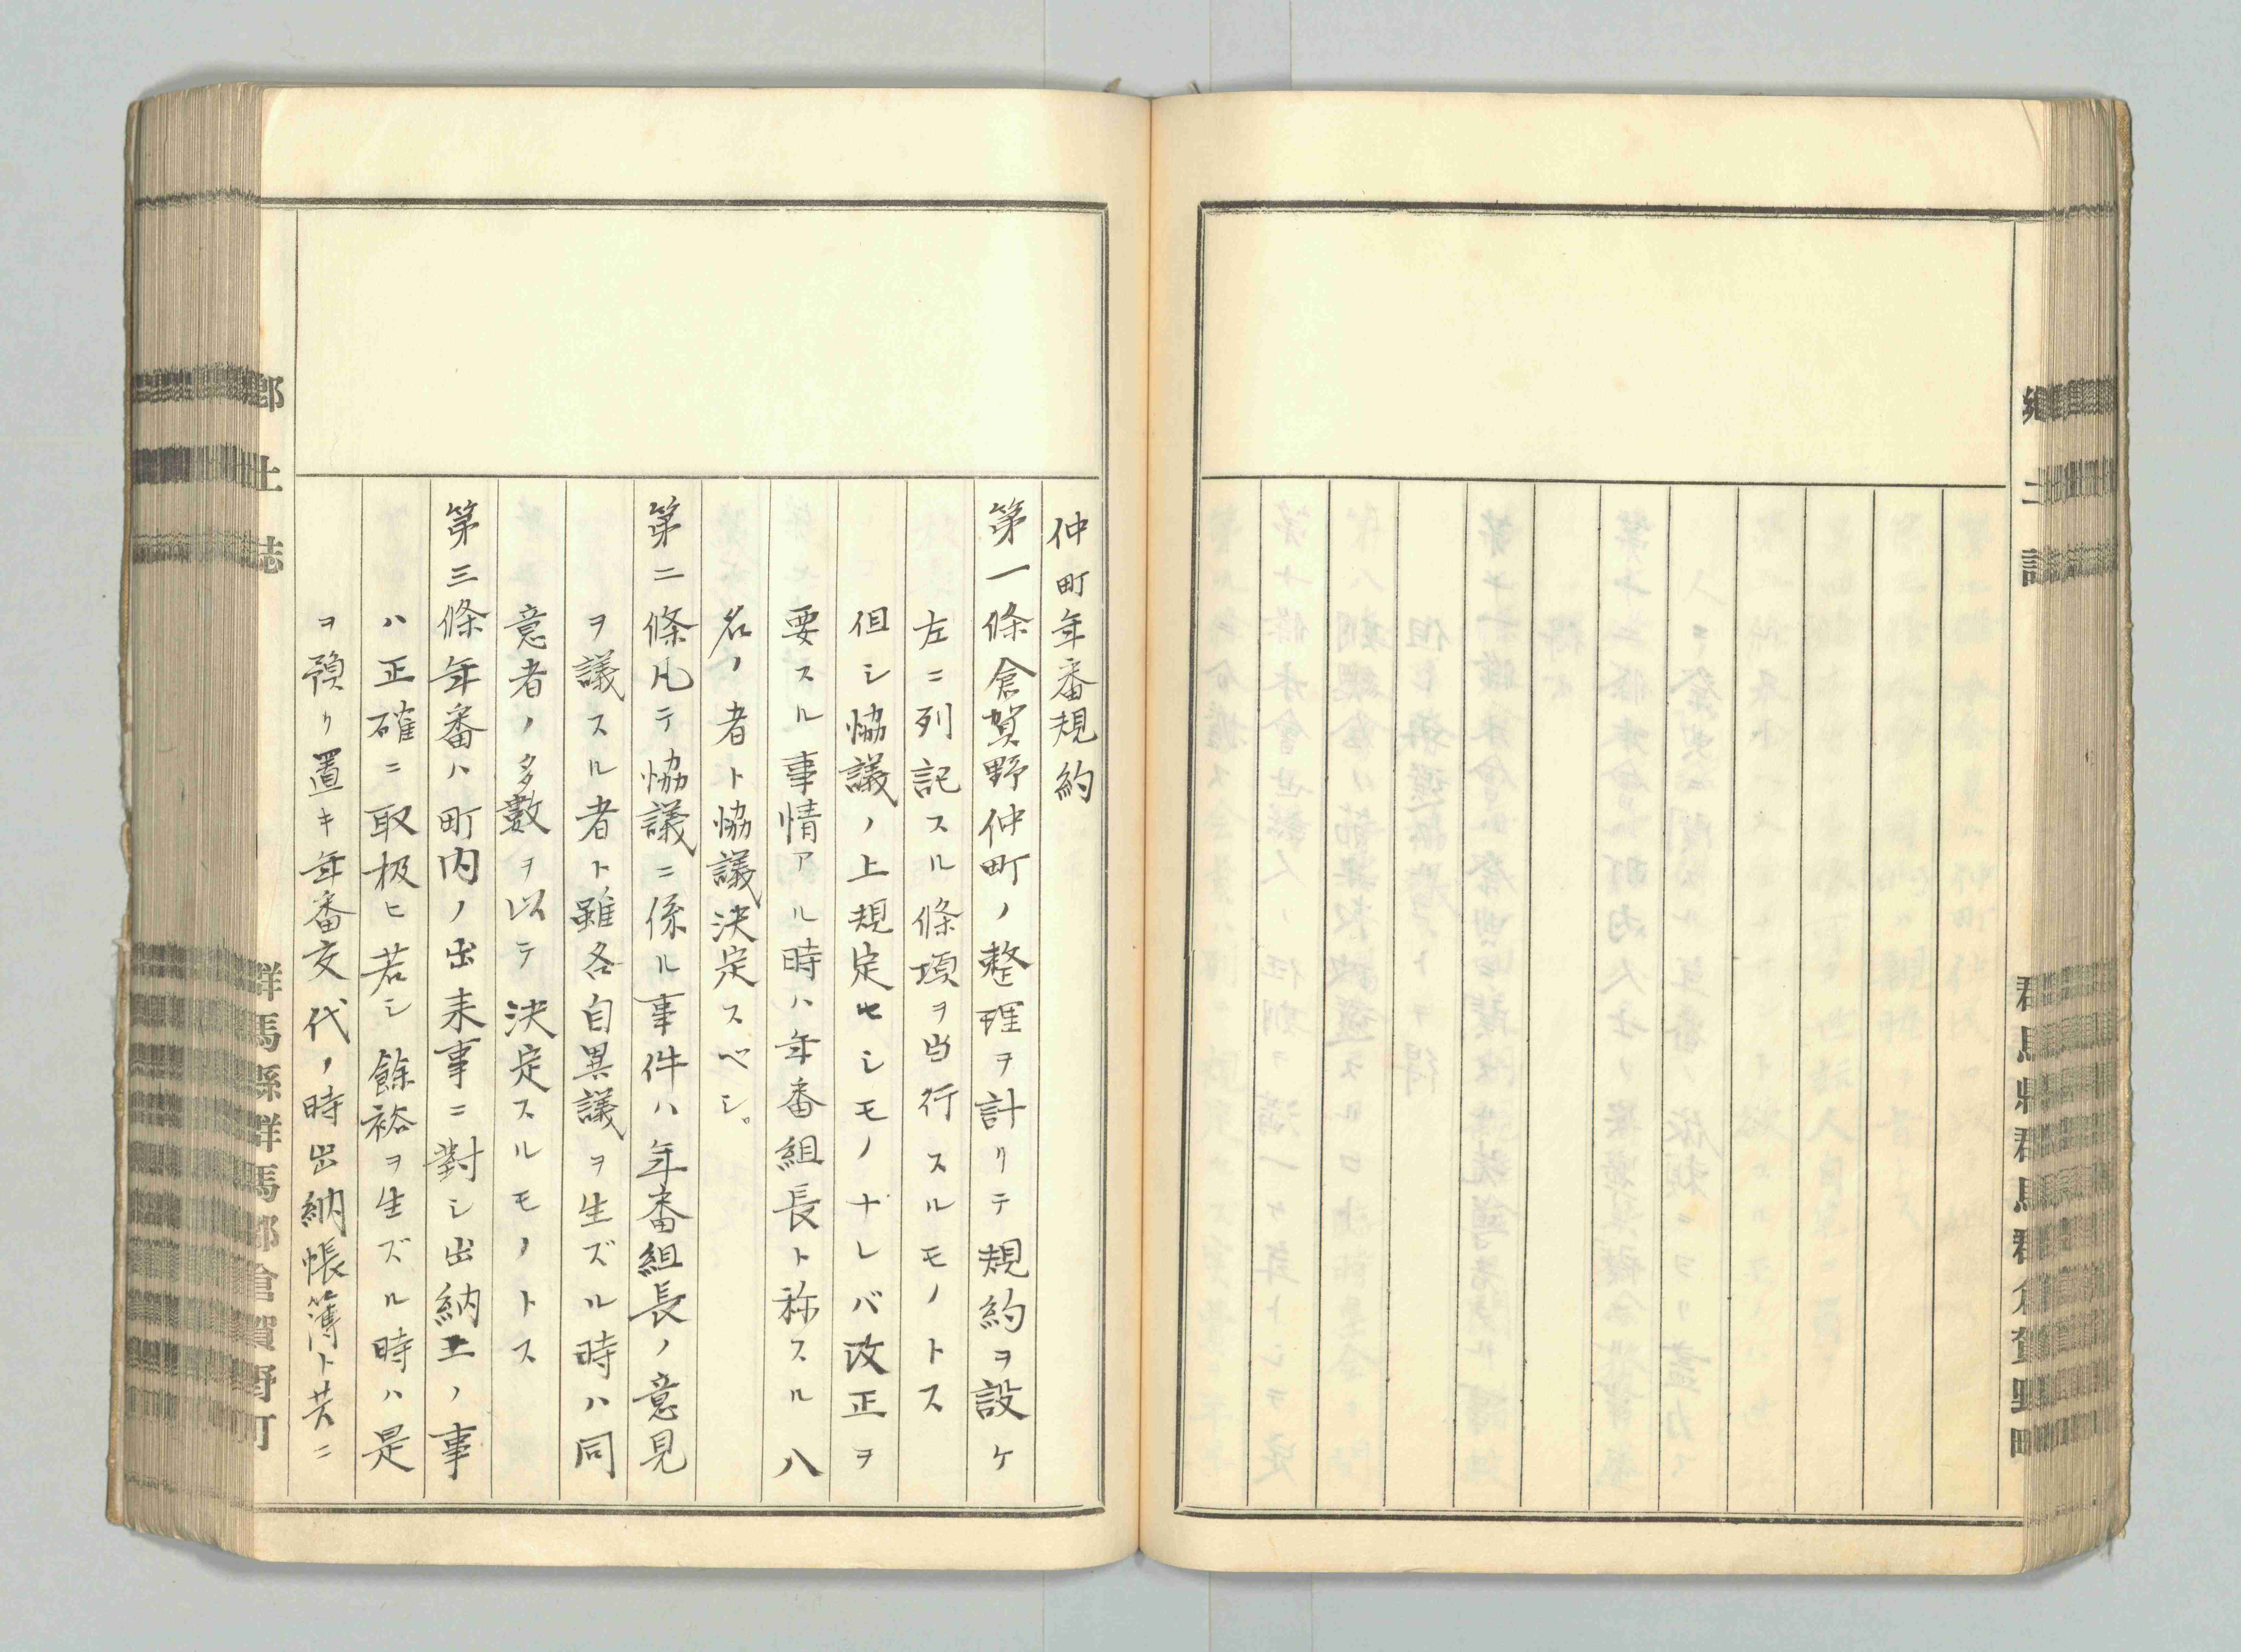 仲町年番規約
第一條倉賀野仲町ノ整理ヲ計リテ規約ヲ設ケ
左ニ列記スル條項ヲ当行スルモノトス
但シ恊議ノ上規定セシモノナレバ改正ヲ
要スル事情アル時ハ年番組長ト称スル八
名ノ者ト恊議決定スベシ。
第二條凡テ恊議ニ係ル事件ハ年番組長ノ意見
ヲ議スル者ト雖各自異議ヲ生ズル時ハ同
意者ノ多數ヲ以テ決定スルモノトス
第三條年番ハ町内ノ出来事ニ對シ出納上ノ事
ハ正確ニ取扱ヒ若シ餘裕ヲ生ズル時ハ是
ヲ預リ置キ年番交代ノ時出納帳簿ト共ニ
鄕土誌
群馬縣群馬郡倉賀野町